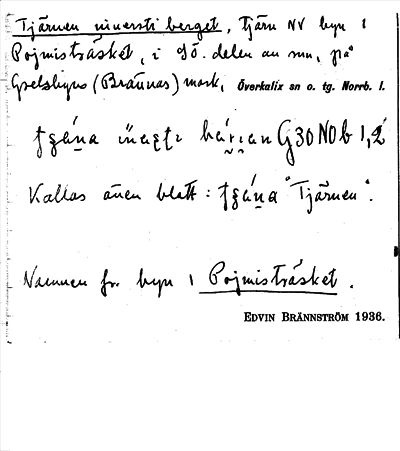 Tjärnen innersti berget, tjärn NV byn 1
Pojmisträsket, i SÖ. delen av sn, på
Grelsbyns (Brännas) mark, Överkalix sn o. tg. Norrb. l.
G30 NO b 1,2
Kallas även blott : "Tjärnen".
Namnen fr. byn 1 Pojmisträsket.
EDVIN BRÄNNSTRÖM 1936.